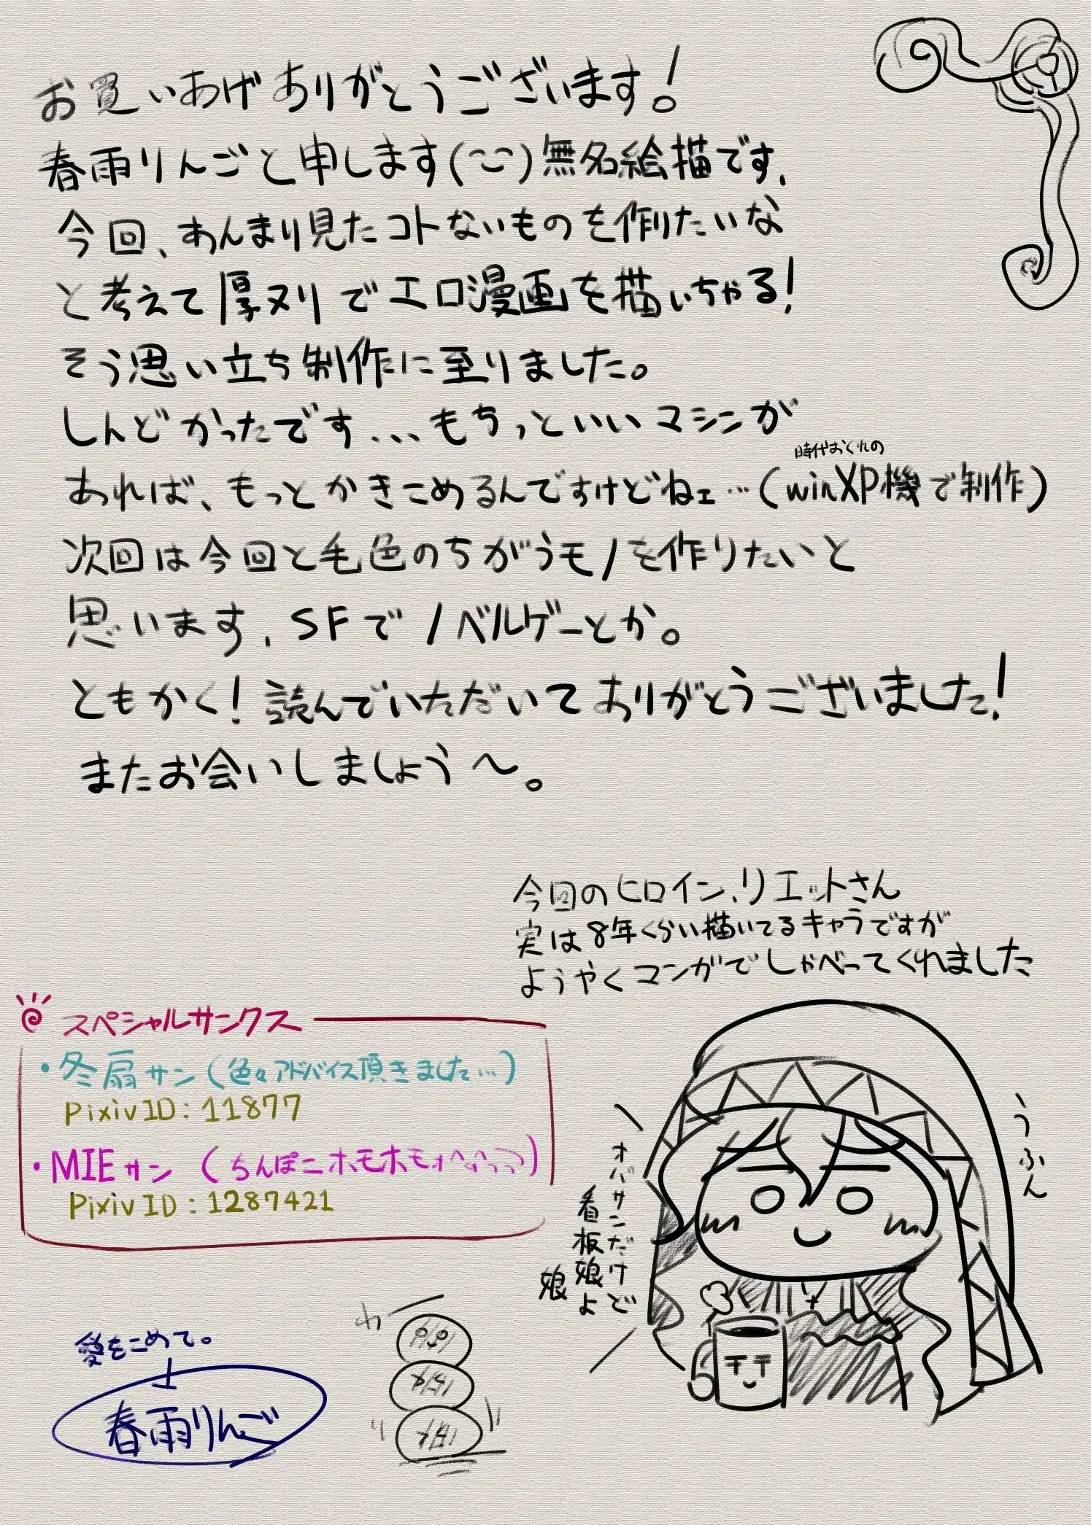 お買いあげありがとうございます!
春雨りんごと申します(^^)無名絵描です、
今回、あんまり見たコトないものを作りたいな
と考えて厚ヌリでエロ漫画を描いちゃる!
そう思い立ち制作に至りました。
しんどかったです...もちっといいマシンが
時代おくれの
あれば、もっとかきこめるんですけどねェ…(winXP機で制作)
次回は今回と毛色のちがうモノを作りたいと
思います、SFでノベルゲーとか。
ともかく!読んでいただいてありがとうございました!
またお会いしましょう〜。
今回のヒロイン、リエットさん
実は8年くらい描いてるキャラですが
ようやくマンガでしゃべってくれました
スペシャルサンクス
・冬扇サン(色々アドバイス頂きました…)
PixivID:11877
・MIEサン(ちんぽこホモホモ
PixivID:1287421
うふん
オバサンだけど
看板娘よ
娘
愛をこめて。
春雨りんご